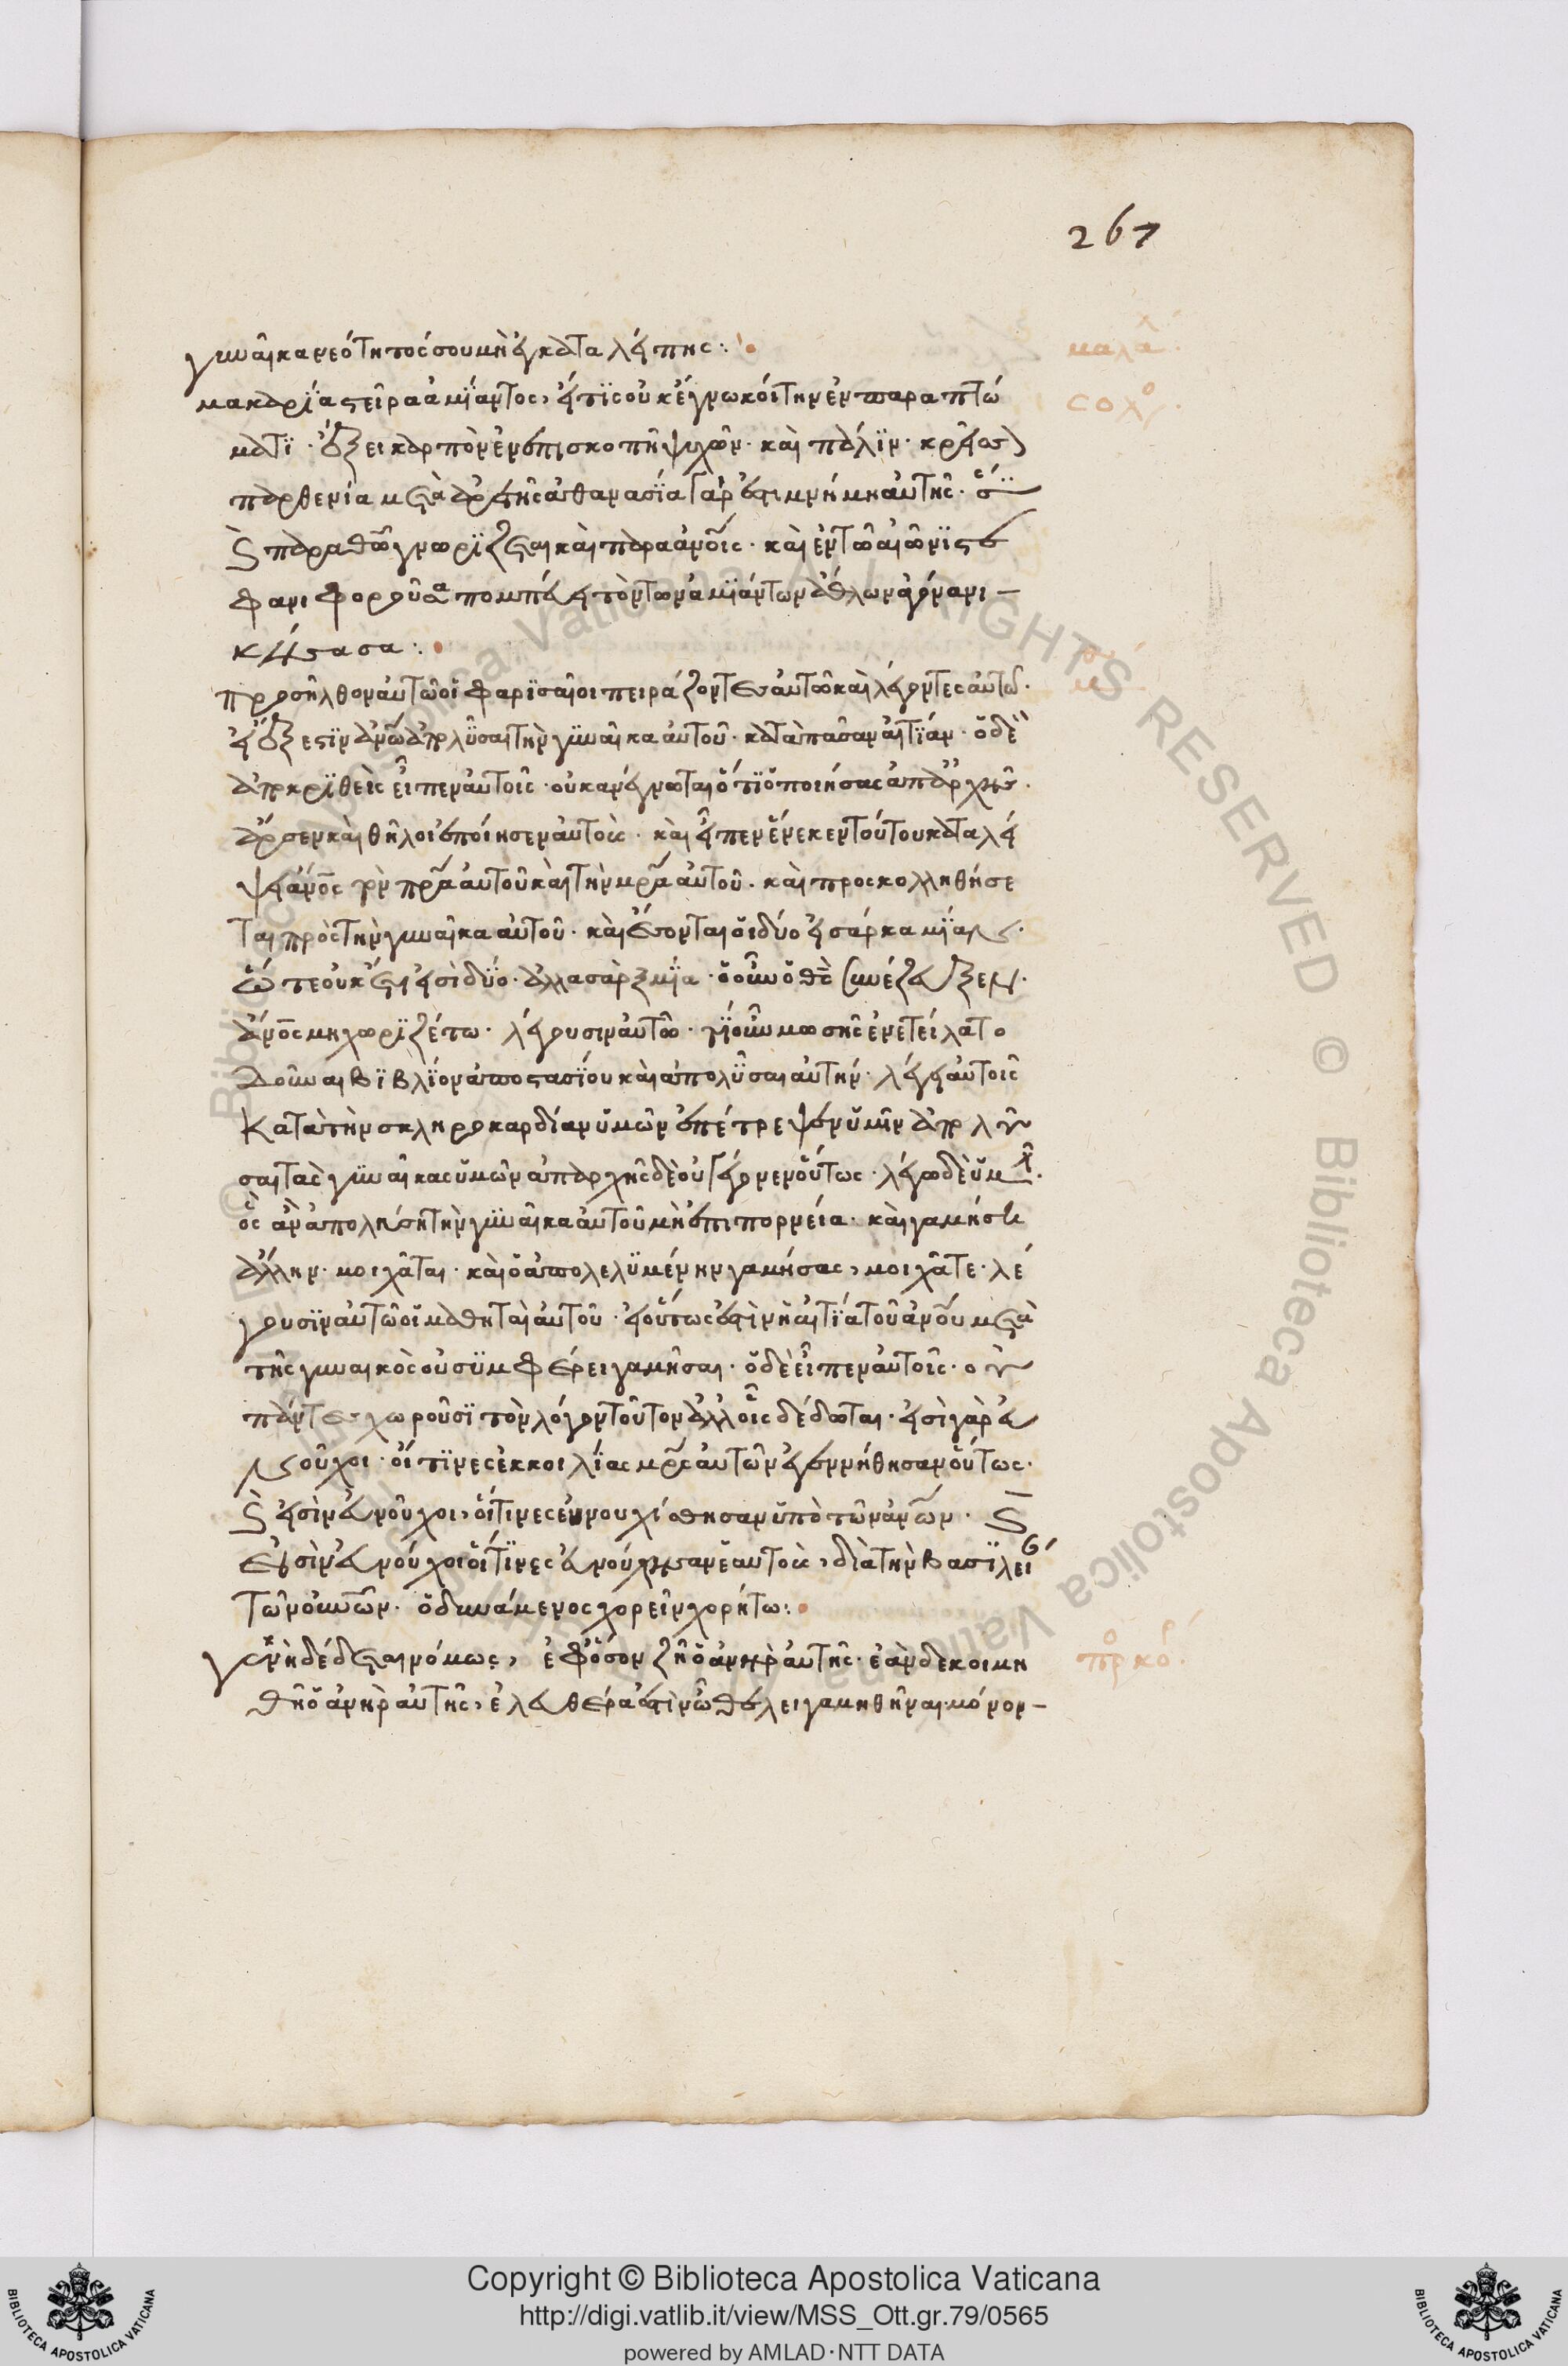 267
γυναῖκα νεότητός σου μὴ ἐγκαταλείπῃς:
μαλαχ
μακαρία στεῖρα ἀμίαντος, εἵτις οὐκ ἔγνω κοίτην ἐν παραπτώ
σολο
ματι· ἕξει καρπὸν ἐν ἐπισκοπῇ ψυχῶν· καὶ πάλιν· κρείσσ
παρθενία μετὰ ἀρετῆς ἀθανασία γάρ ἐστι μνήμη αὐτῆς· ὅτι
καὶ παρὰ θῶ γνωρίζεται καὶ παρὰ ἀνοις· καὶ ἐν τῶ αἰῶνι στε
φανιφοροῦσα πομπεύει τὸν τῶν ἀμιάντων ἄθλων ἀγῶνα νι
κήσασα:
προσῆλθον αὐτῶ οἱ φαρισαῖοι πειράζοντες αὐτῶ καὶ λέγοντες αὐτῶ·
εἰ ἔξεστιν ἀνω ἀπολῦσαι τὴν γυναῖκα αὐτοῦ· κατὰ πᾶσαν αἰτίαν· ὁ δὲ
ἀποκριθεὶς εἶπεν αὐτοῖς· οὐκ ἀνέγνωται ὅτι ὁ ποιήσας ἀπαρχῆς·
ἄρσεν καὶ θῆλοι ἐποίησεν αὐτούς· καὶ εἶπεν ἕνεκεν τούτου καταλεί
ψει ἄνος τὸν πρα αὐτοῦ καὶ τὴν μρα αὐτοῦ· καὶ προσκολληθήσε
ται πρὸς τὴν γυναῖκα αὐτοῦ· καὶ ἔσονται οἱ δύο εἰς σάρκα μίαν·
ὥστε οὐκέτι εἰσὶ δύο· ἀλλα σὰρξ μία· ὃ οὖν ὁ θς συνέζευξεν·
ἄνος μη χωριζέτω· λέγουσιν αὐτῶ· τί οὖν μωσῆς ἐνετείλατο
δοῦναι βιβλίον ἀποστασίου καὶ ἀπολῦσαι αὐτήν· λέγει αὐτοῖς
κατὰ τὴν σκληροκαρδίαν ὑμῶν ἐπέτρεψεν ὑμῖν ἀπολῦ
σαι τὰς γυναῖκας ὑμῶν ἀπαρχῆς δὲ οὐ γέγονεν οὕτως· λέγω δὲ ὑμῖν·
ὃς ἂν ἀπολήσῃ τὴν γυναῖκα αὐτοῦ μὴ ἐπι πορνεία· καὶ γαμήσει
ἄλλην· μοιχᾶται· καὶ ὁ ἀπολελυμένην γαμήσας, μοιχᾶτε· λέ
γουσιν αὐτῶ οἱ μαθηταὶ αὐτοῦ· εἰ οὕτως ἐστὶν ἡ αἰτία τοῦ ἀνου μετὰ
τῆς γυναικὸς οὐ συμφέρει γαμῆσαι· ὁ δὲ εἶπεν αὐτοῖς· οὐ
πάντες χωροῦσι τὸν λόγον τοῦτον ἀλλ οἷς δέδωται· εἰσὶ γὰρ εὐ
νοῦχοι· οἵτινες ἐκ κοιλίας μρς αὐτῶν ἐγεννήθησαν οὕτως·
καὶ εἰσὶν εὐνοῦχοι, οἵτινες ἐυνουχίσθησαν ὑπὸ τῶν ἀνων· καὶ
εἰσὶν εὐνούχοι οἵτινες εὐνούχησαν ἑαυτούς, διὰ τὴν βασιλεί
τῶν οὐνων· ὁ δυνάμενος χορεῖν χορήτω:
γυνὴ δέδεται νόμως, ἐφ ὅσον ζῆ ὁ ἀνὴρ αὐτῆς· ἐὰν δε κοιμη
προ κορ
θῆ ὁ ἀνὴρ αὐτῆς, ἐλευθέρα ἐστὶν ὧ θέλει γαμηθῆναι μόνον
Copyright © Biblioteca Apostolica Vaticana
http://digi.vatlib.it/view/MSS_Ott.gr.79/0565
powered by AMLAD·NTT DATA